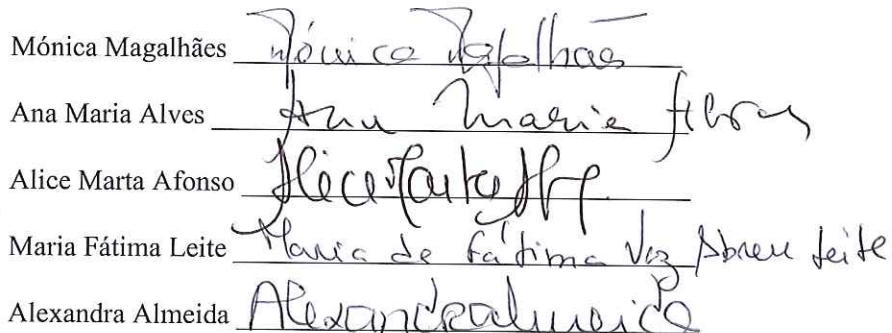 Mónica Magalhães Mónica Magalhães
Ana Maria Alves Ana Maria Alves
Alice Marta Afonso Alice Marta
Maria Fátima Leite Maria de Fátima Vaz Abreu Leite
Alexandra Almeida Alexandra Almeida